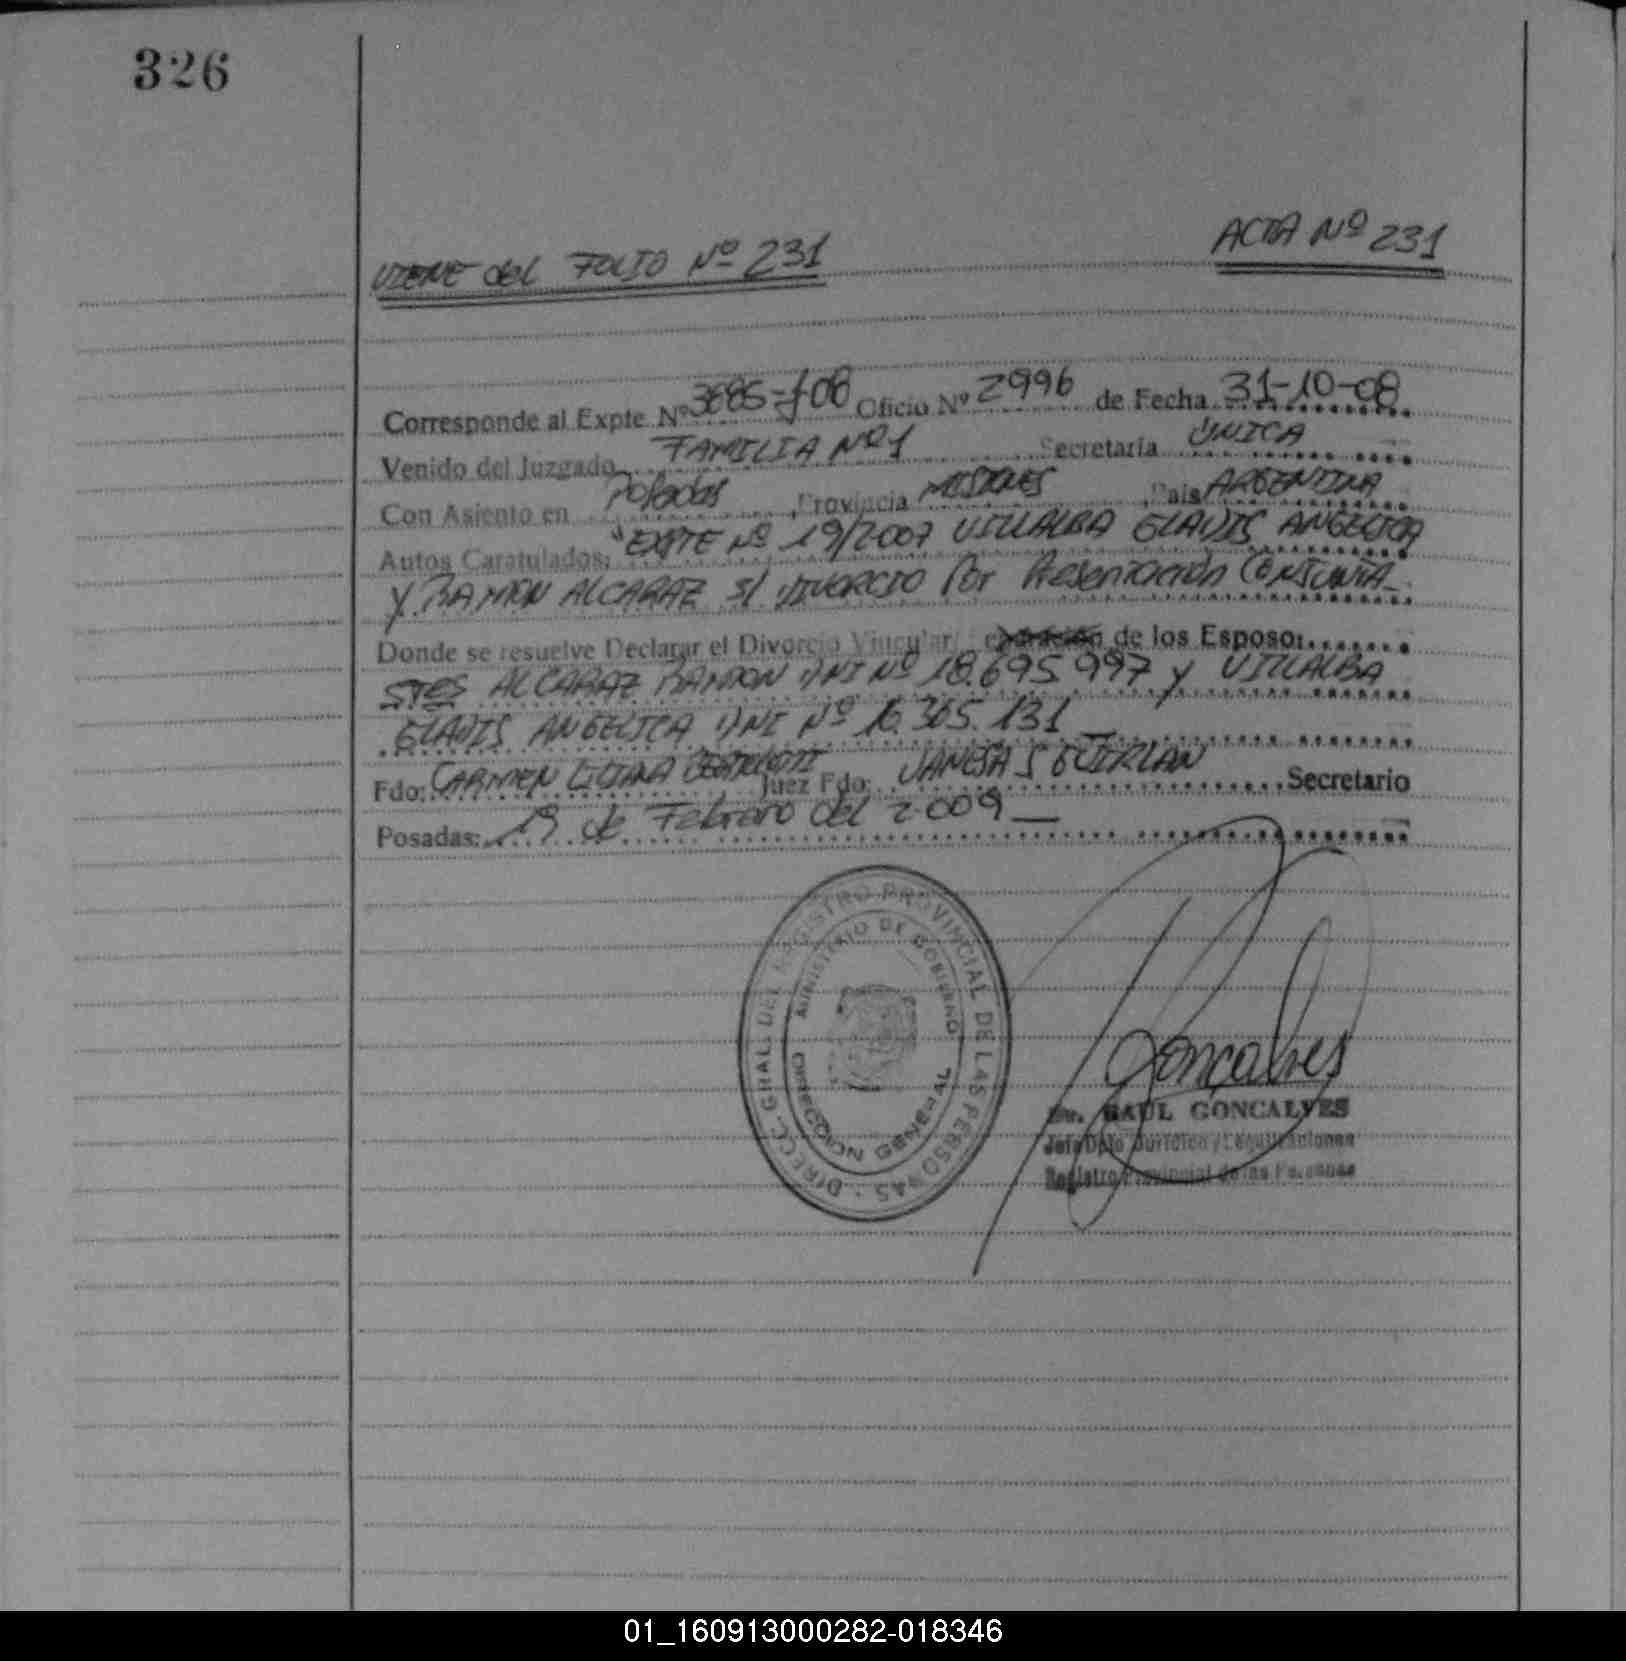 326
VIENE del FOLIO Nº 231
ACTA Nº 231
Corresponde al Expte Nº 3685-f-08 Oficio Nº 2996 de Fecha 31-10-08
Venido del Juzgado FAMILIA Nº1 Secretaria UNICA
Con Asiento en Posadas, Provincia MISIONES, Pais ARGENTINA
Autos Caratulados: "EXPTE Nº 19/2007 VILLALBA GLADIS ANGELICA
Y RAMON ALCARAZ S/ DIVORCIO Por Presentación CONJUNTA
Donde se resuelve Declarar el Divorcio Vincular de los Esposos
ALCARAZ RAMON DNI Nº 18.695.997 y VILLALBA
GLADIS ANGELICA DNI Nº 16.365.131
Fdo: CARMEN LILIANA Juez Fdo: VANESA S Secretario
Posadas: 19 de Febrero del 2.009
DIRECC. GRAL. DEL REGISTRO PROVINCIAL DE LAS PERSONAS
MINISTERIO DE GOBIERNO
DIRECCION GENERAL
Goncalves
RAUL GONCALVES
Jefe Dpto Juridico y
Registro Provincial de las Personas
01_160913000282-018346